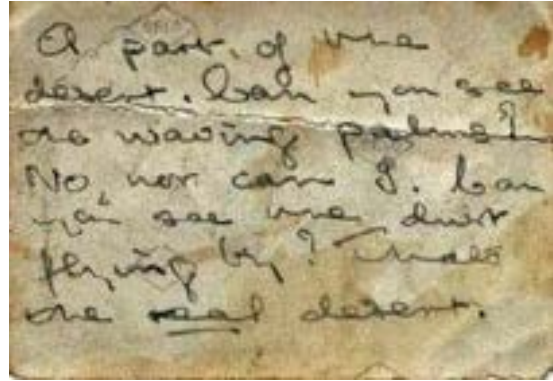 A part of the
desert. Can you see
the waving palms?
No, nor can I. Can
you see the dust
flying by? That's
the real desert.